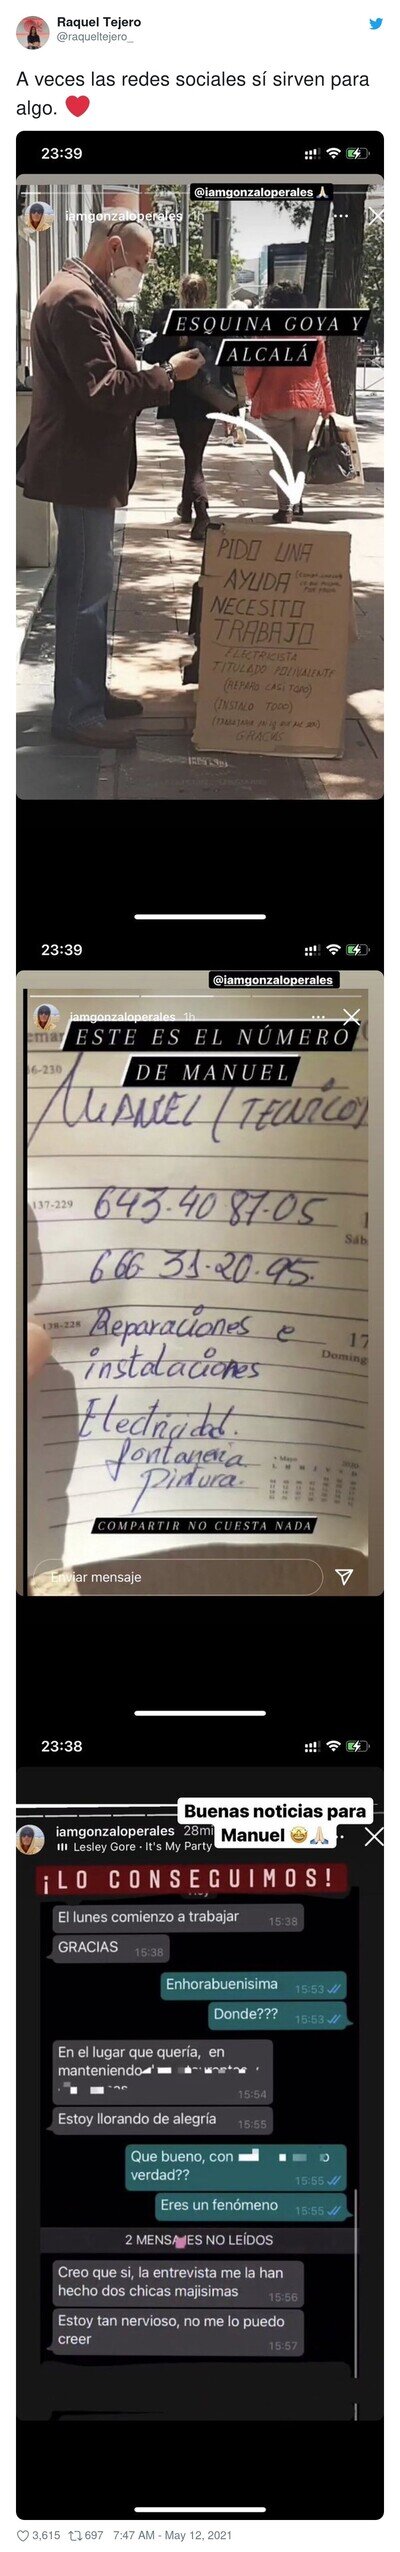 Raquel Tejero
@raqueltejero_
A veces las redes sociales sí sirven para
algo. ❤️
23:39
@iamgonzaloperales 🙏🏻
iamgonzaloperales 1h
ESQUINA GOYA Y
ALCALÁ
PIDO UNA
AYUDA
NECESITO
TRABAJO
ELECTRICISTA
TITULADO POLIVALENTE
(REPARO CASI TODO)
(INSTALO TODO)
GRACIAS
23:39
@iamgonzaloperales
iamgonzaloperales 1h
ESTE ES EL NÚMERO
6-230
DE MANUEL
MANUEL (TECNICO)
137-229
643.40 87.05
Sáb
666 31.20.95.
138-228
Reparaciones e
17
Doming
instalaciones
Electricidad.
fontanería
Mayo
pintura.
COMPARTIR NO CUESTA NADA
Enviar mensaje
23:38
Buenas noticias para
iamgonzaloperales 28mi
Manuel 🤩🙏🏻
Lesley Gore · It's My Party
¡LO CONSEGUIMOS!
El lunes comienzo a trabajar 15:38
GRACIAS 15:38
Enhorabuenisima 15:53
Donde??? 15:53
En el lugar que quería, en
manteniendo
15:54
Estoy llorando de alegría 15:55
Que bueno, con
verdad?? 15:55
Eres un fenómeno 15:55
2 MENSAJES NO LEÍDOS
Creo que si, la entrevista me la han
hecho dos chicas majisimas 15:56
Estoy tan nervioso, no me lo puedo
creer 15:57
3,615 697 7:47 AM - May 12, 2021